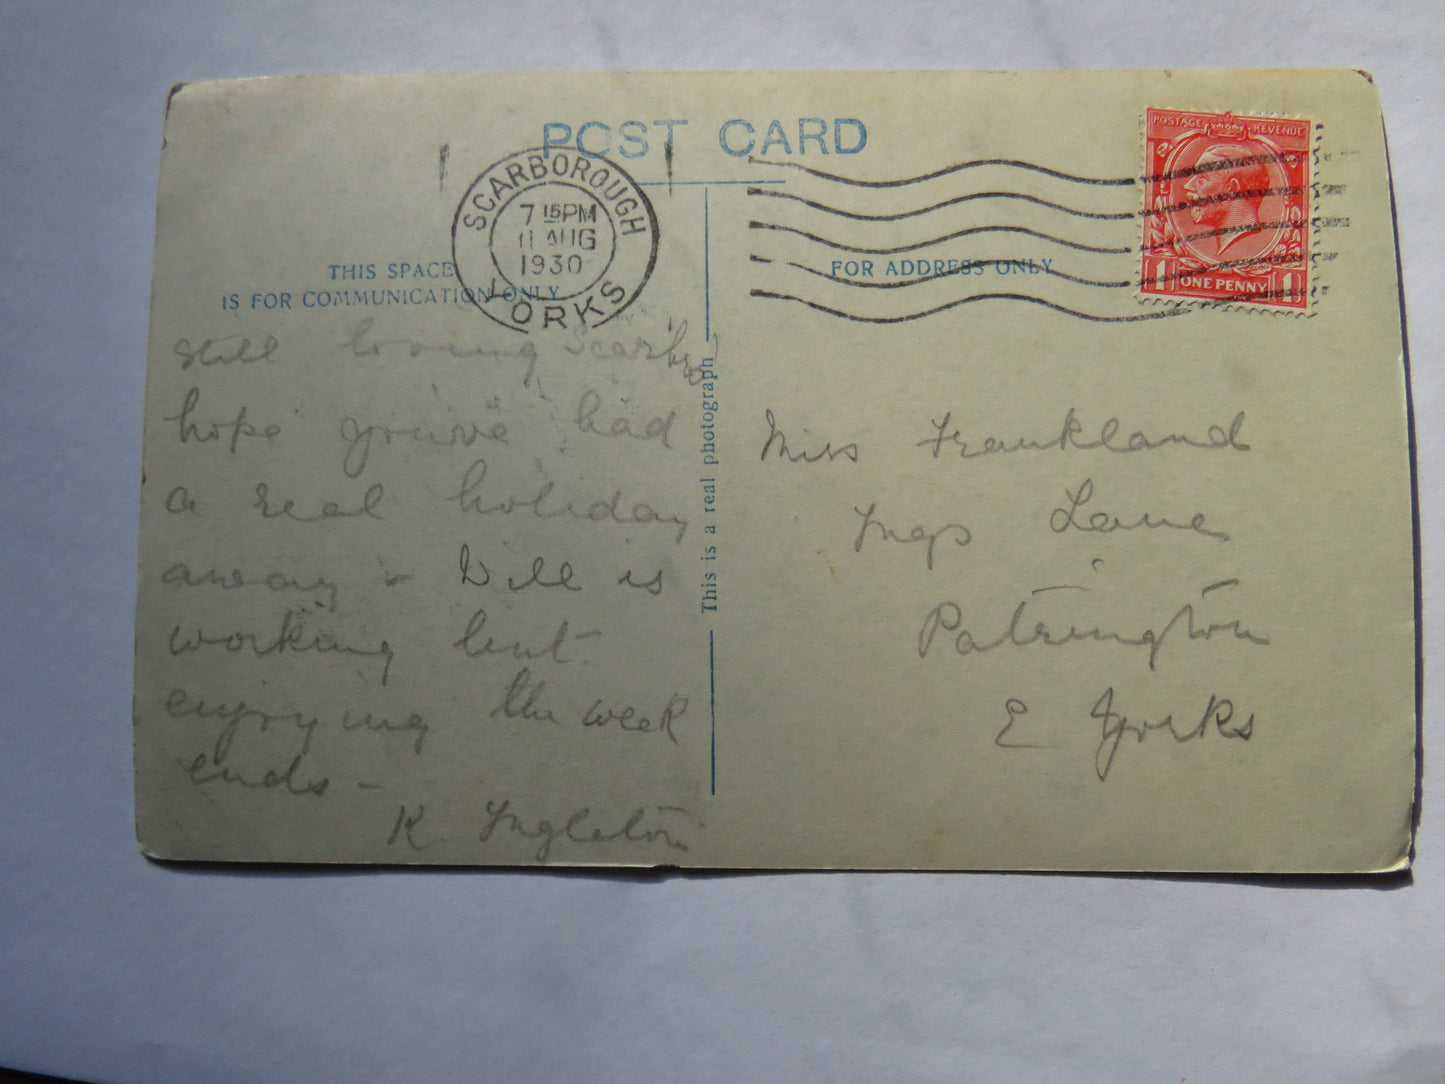 POST CARD
POSTAGE REVENUE
ONE PENNY
1 1
SCARBOROUGH
7 15PM
11 AUG
1930
YORKS
THIS SPACE
IS FOR COMMUNICATION ONLY
FOR ADDRESS ONLY
This is a real photograph
Still loving Scarbro
hope you've had
a real holiday
away - Will is
working but
enjoying the week
ends -
K Ingleton
Miss Frankland
Ings Lane
Patrington
E Yorks